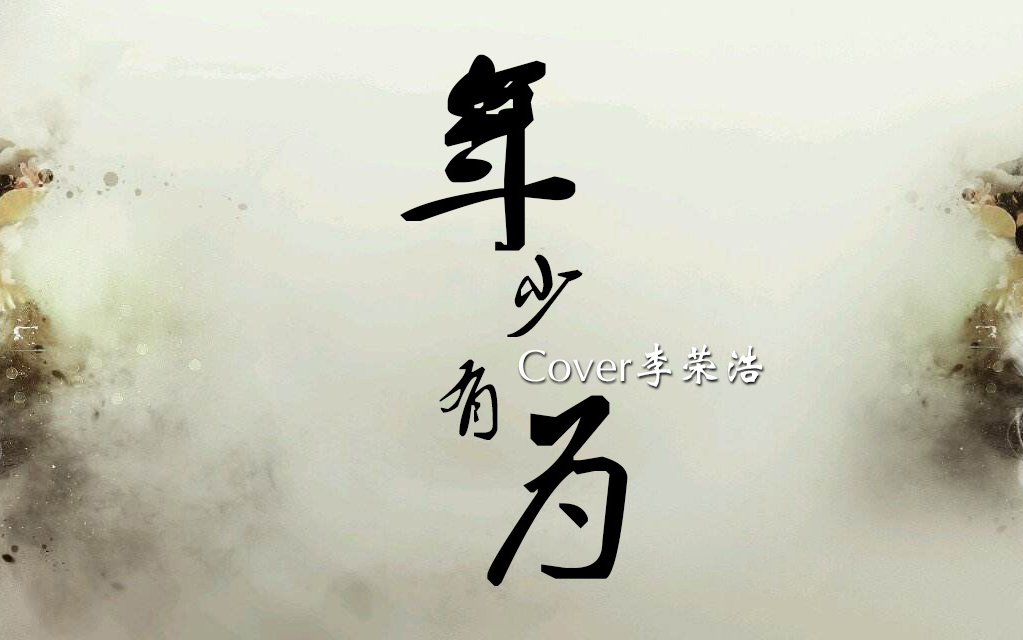 年少有为
Cover李荣浩